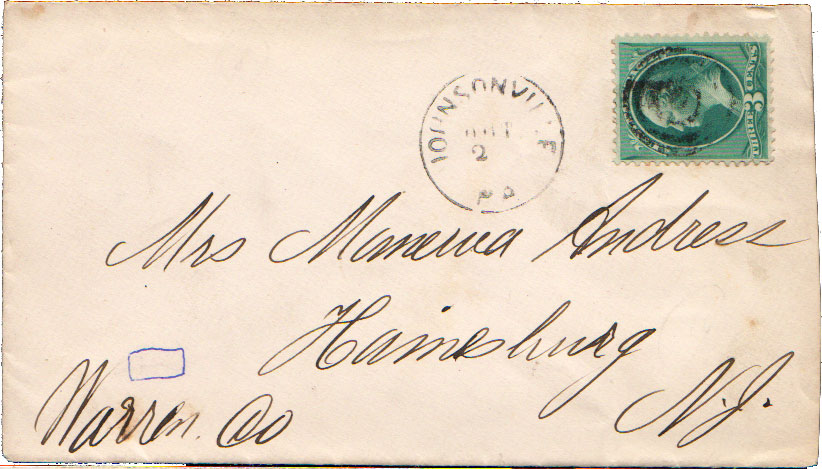 JOHNSONVILLE
2
PA
3
CENTS
Mrs Manerva Andress
Hainesburg
Warren. Co
N.J.